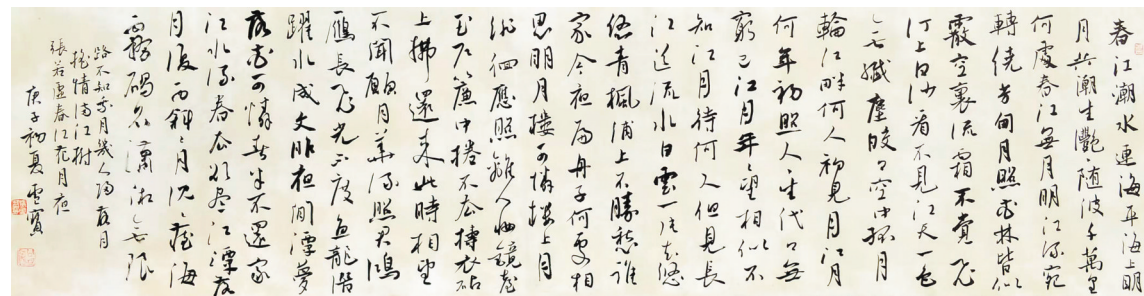 春江潮水連海平海上明
月共潮生灩灩随波千萬里
何處春江無月明江流宛
轉繞芳甸月照花林皆似
霰空裏流霜不覺飛
汀上白沙看不見江天一色
無纖塵皎皎空中孤月
輪江畔何人初見月江月
何年初照人人生代代無
窮已江月年年望相似不
知江月待何人但見長
江送流水白雲一片去悠
悠青楓浦上不勝愁誰
家今夜扁舟子何處相
思明月樓可憐樓上月
徘徊應照離人妝鏡臺
玉戶簾中捲不去擣衣砧
上拂還來此時相望
不聞願月華流照君鴻
雁長飛光不度魚龍潛
躍水成文昨夜閒潭夢
落花可憐春半不還家
江水流春去欲盡江潭落
月復西斜斜月沉沉藏海
霧碣石瀟湘無限
路不知乘月幾人歸落月
搖情滿江樹
張若虛春江花月夜
庚子初夏雲賓